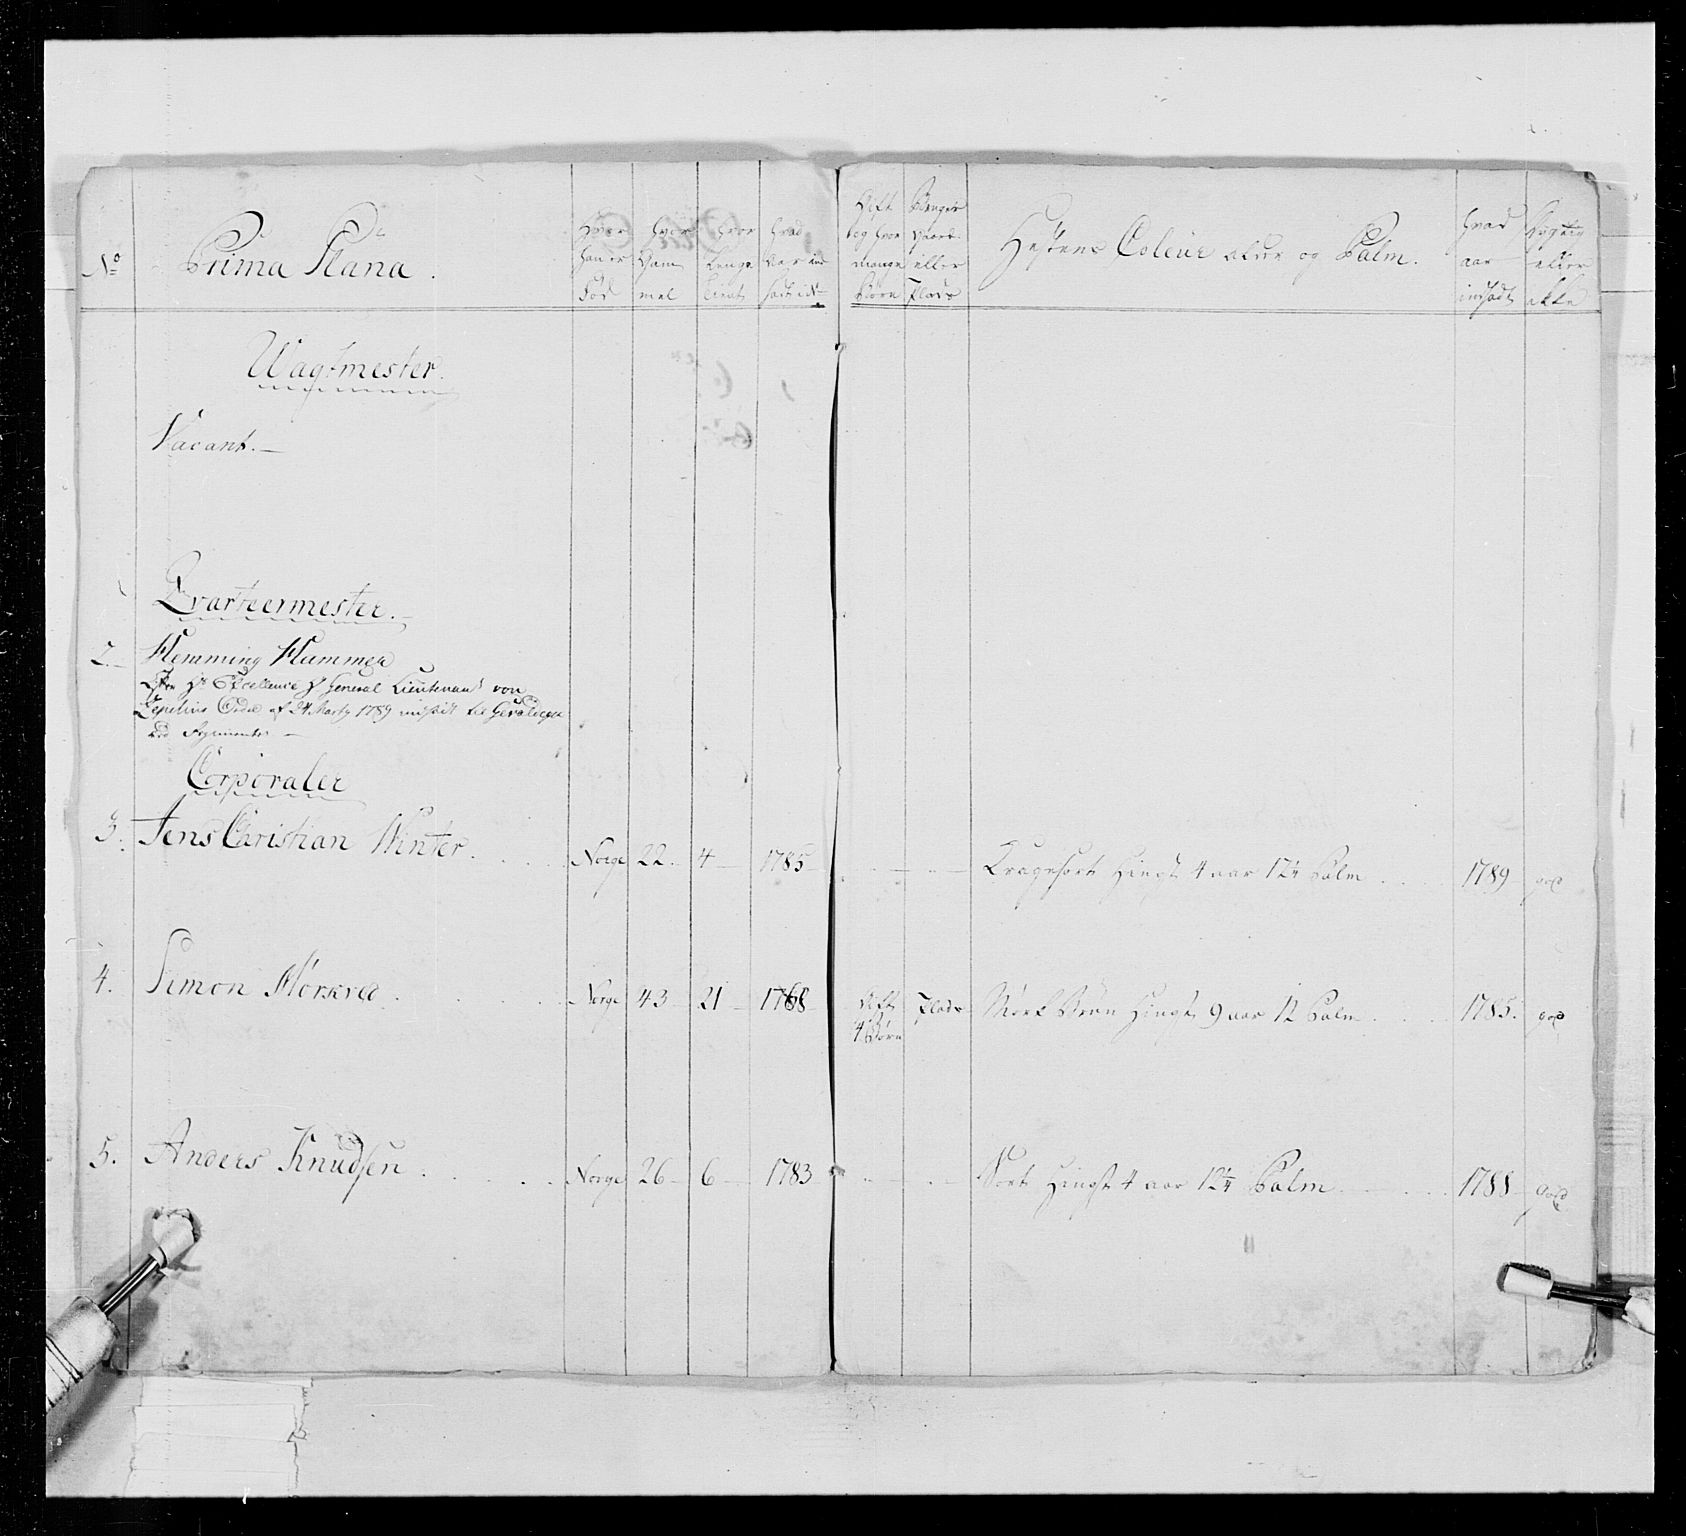 No
Prima Plana.
Hvor
han er
Fød
hvor
Gam
mel
hvor
Lenge
tient
hvad
Aar ind
sadt i No
Gift
og hvor
mange
Børn
Plads
eller
Hestens Coleur alder og Palm.
hvad
aar
indsadt
Dygtig
eller
ikke
Wagtmester.
Vacant.—
Qvarteermester.
2. Flemming Hammer
Efter Hs Excellence Hr General Lieutenant von
Ordre af 24 Marty 1789 til
ved Regimentet —
Corporaler
3. Jens Christian Winter. Norge 22. 4 — 1785 Kragesort Hingst 4 aar 12¼ Palm 1789 god
4. Simon Hørsrød. Norge 43 21 — 1768 Gift Plads Mørk Brun Hingst 9 aar 12 Palm 1785. god
4 Børn
5. Anders Knudsen. Norge 26 — 6 — 1783 Sort Hingst 4 aar 12¼ Palm 1788 god